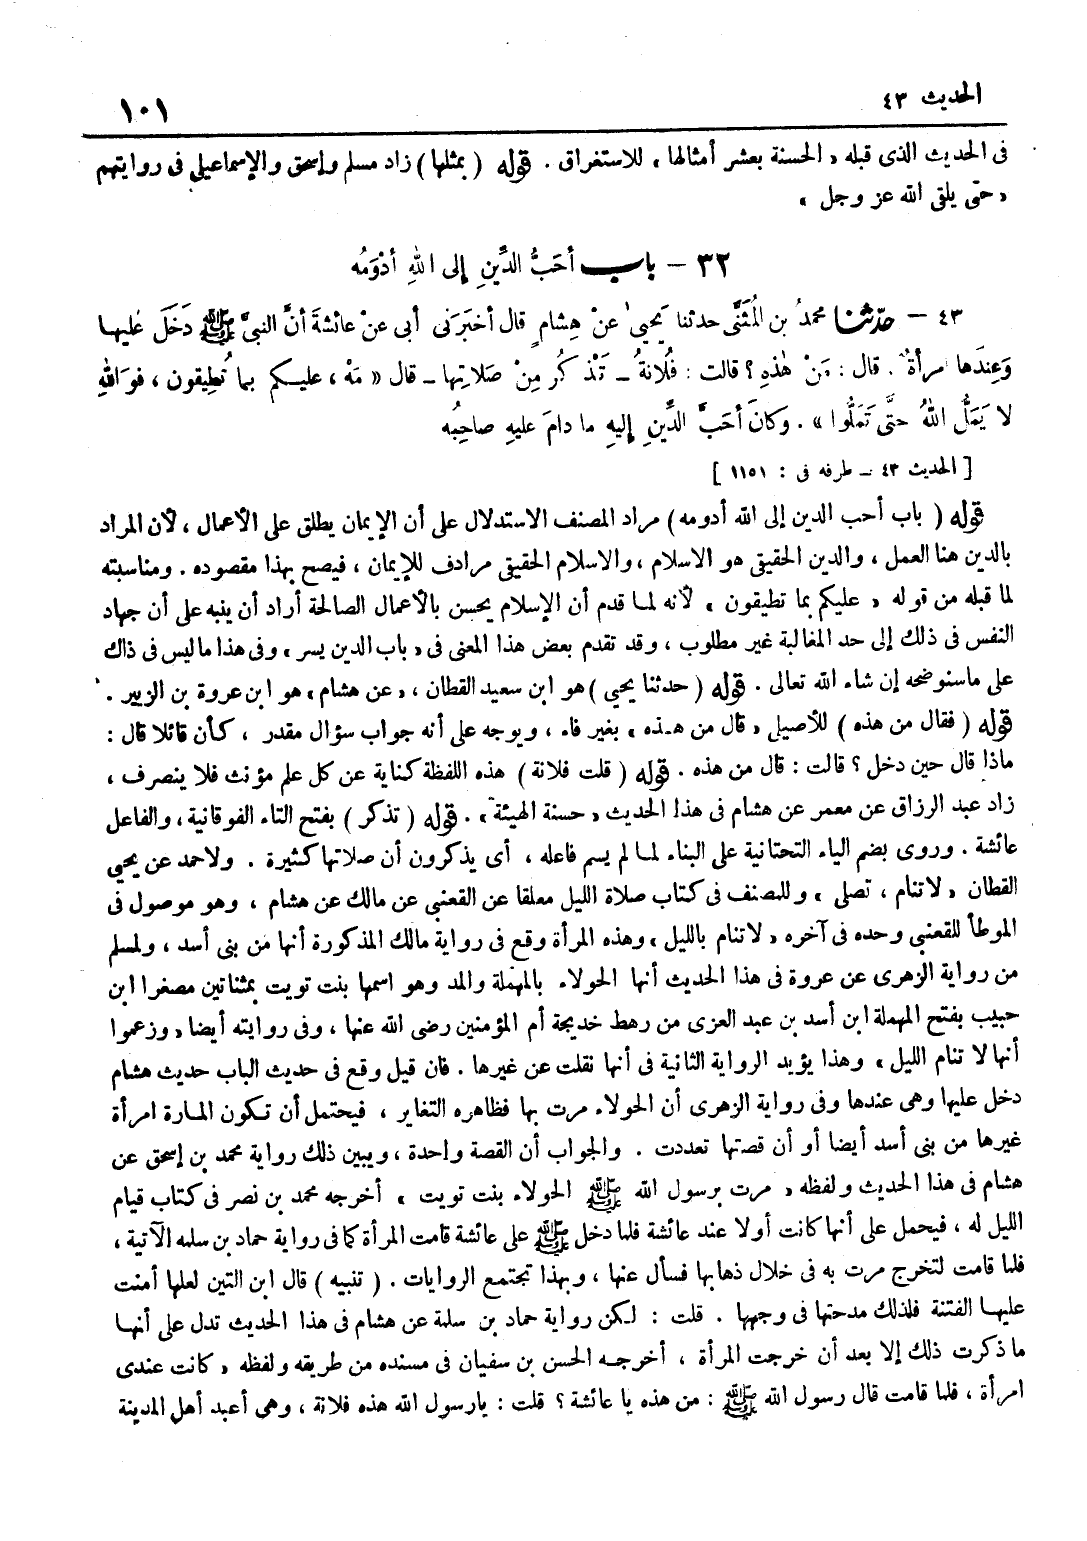 الحديث ٤٣
١٠١
فى الحديث الذى قبله « الحسنة بعشر أمثالها » للاستغراق . قوله ( بمثلها ) زاد مسلم وإسحق والإسماعيلى فى روايتهم
« حتى يلقى الله عز وجل »
٣٢ – باب أحَبُّ الدِّينِ إلى اللهِ أدْوَمُه
٤٣ – حدّثنا محمدُ بن المُثَنَّى حدثنا يَحيىٰ عنْ هِشامٍ قال أخبَرَنى أبى عنْ عائشةَ أنَّ النبىَّ ﷺ دَخَلَ عليها
وَعِندَها امرأةٌ . قال : مَنْ هٰذهِ ؟ قالت : فُلانةُ – تَذْكُرُ مِنْ صَلاتِها – قال « مَهْ ، عليكم بما تُطِيقون ، فوَاللهِ
لا يَمَلُّ اللهُ حتَّى تَمَلُّوا » . وكانَ أحَبَّ الدِّينِ إليهِ ما دامَ عليهِ صاحِبُه
[ الحديث ٤٣ – طرفه فى : ١١٥١ ]
قوله ( باب أحب الدين إلى الله أدومه ) مراد المصنف الاستدلال على أن الإيمان يطلق على الأعمال ، لأن المراد
بالدين هنا العمل ، والدين الحقيقى هو الاسلام ، والاسلام الحقيقى مرادف للإيمان ، فيصح بهذا مقصوده . ومناسبته
لما قبله من قوله « عليكم بما تطيقون » لأنه لما قدم أن الإسلام يحسن بالأعمال الصالحة أراد أن ينبه على أن جهاد
النفس فى ذلك إلى حد المغالبة غير مطلوب ، وقد تقدم بعض هذا المعنى فى « باب الدين يسر » وفى هذا ما ليس فى ذاك
على ما سنوضحه إن شاء الله تعالى . قوله ( حدثنا يحيى ) هو ابن سعيد القطان ، « عن هشام » هو ابن عروة بن الزبير .
قوله ( فقال من هذه ) للأصيلى « قال من هذه » بغير فاء ، ويوجه على أنه جواب سؤال مقدر ، كأن قائلا قال :
ماذا قال حين دخل ؟ قالت : قال من هذه . قوله ( قلت فلانة ) هذه اللفظة كناية عن كل علم مؤنث فلا ينصرف ،
زاد عبد الرزاق عن معمر عن هشام فى هذا الحديث « حسنة الهيئة » . قوله ( تذكر ) بفتح التاء الفوقانية ، والفاعل
عائشة . وروى بضم الياء التحتانية على البناء لما لم يسم فاعله ، أى يذكرون أن صلاتها كثيرة . ولاحمد عن يحيى
القطان « لا تنام ، تصلى » وللمصنف فى كتاب صلاة الليل معلقا عن القعنبى عن مالك عن هشام ، وهو موصول فى
الموطأ للقعنبى وحده فى آخره « لا تنام بالليل » وهذه المرأة وقع فى رواية مالك المذكورة أنها من بنى أسد ، ولمسلم
من رواية الزهرى عن عروة فى هذا الحديث أنها الحولاء بالمهملة والمد وهو اسمها بنت تويت بمثناتين مصغرا ابن
حبيب بفتح المهملة ابن أسد بن عبد العزى من رهط خديجة أم المؤمنين رضى الله عنها ، وفى روايته أيضا « وزعموا
أنها لا تنام الليل » وهذا يؤيد الرواية الثانية فى أنها نقلت عن غيرها . فان قيل وقع فى حديث الباب حديث هشام
دخل عليها وهى عندها وفى رواية الزهرى أن الحولاء مرت بها فظاهره التغاير ، فيحتمل أن تكون المارة امرأة
غيرها من بنى أسد أيضا أو أن قصتها تعددت . والجواب أن القصة واحدة ، ويبين ذلك رواية محمد بن إسحق عن
هشام فى هذا الحديث ولفظه « مرت برسول الله ﷺ الحولاء بنت تويت » أخرجه محمد بن نصر فى كتاب قيام
الليل له ، فيحمل على أنها كانت أولا عند عائشة فلما دخل ﷺ على عائشة قامت المرأة كما فى رواية حماد بن سلمه الآتية ،
فلما قامت لتخرج مرت به فى خلال ذهابها فسأل عنها ، وبهذا تجتمع الروايات . ( تنبيه ) قال ابن التين لعلها أمنت
عليها الفتنة فلذلك مدحتها فى وجهها . قلت : لكن رواية حماد بن سلمة عن هشام فى هذا الحديث تدل على أنها
ما ذكرت ذلك إلا بعد أن خرجت المرأة ، أخرجه الحسن بن سفيان فى مسنده من طريقه ولفظه « كانت عندى
امرأة ، فلما قامت قال رسول الله ﷺ : من هذه يا عائشة ؟ قلت : يارسول الله هذه فلانة ، وهى أعبد أهل المدينة